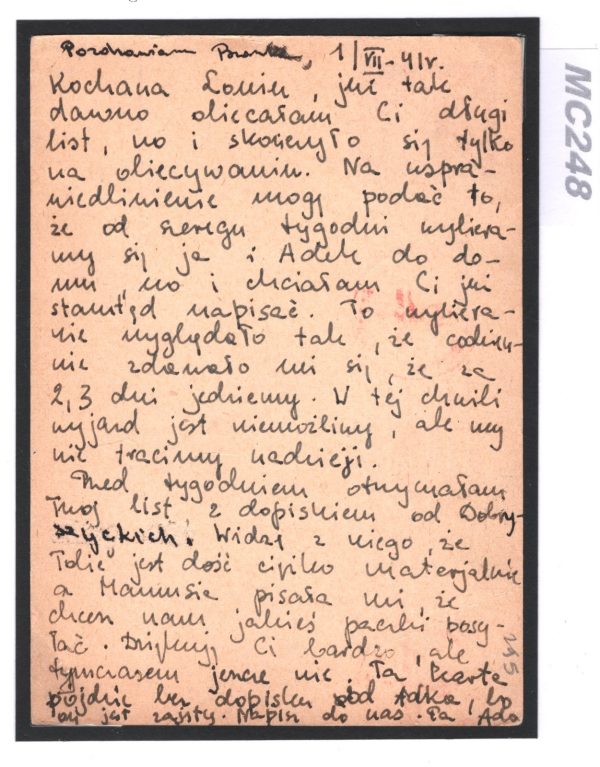 Pozdrawiam Bronka, 1/VII-41r.
Kochana Loniu, już tak
dawno obiecałam Ci długi
list, no i skończyło się tylko
na obiecywaniu. Na uspra-
wiedliwienie mogę podać to,
że od szeregu tygodni wybiera-
my się ja i Adek do do-
mu, no i chciałam Ci już
stamtąd napisać. To wybiera-
nie wyglądało tak, że codzien-
nie zdawało mi się, że za
2, 3 dni jedziemy. W tej chwili
wyjazd jest niemożliwy, ale my
nie tracimy nadzieji.
Przed tygodniem otrzymałam
Twój list z dopiskiem od Dobry-
szyckich. Widzę z niego, że
Tobie jest dość ciężko materjalnie
a Mamusia pisała mi, że
chcesz nam jakieś paczki posy-
łać. Dziękuję Ci bardzo, ale
tymczasem jeszcze nie. Ta karta
pójdzie bez dopisku od Adka, bo
on jest zajęty. Napisz do nas. Ta Ada
MC248
245